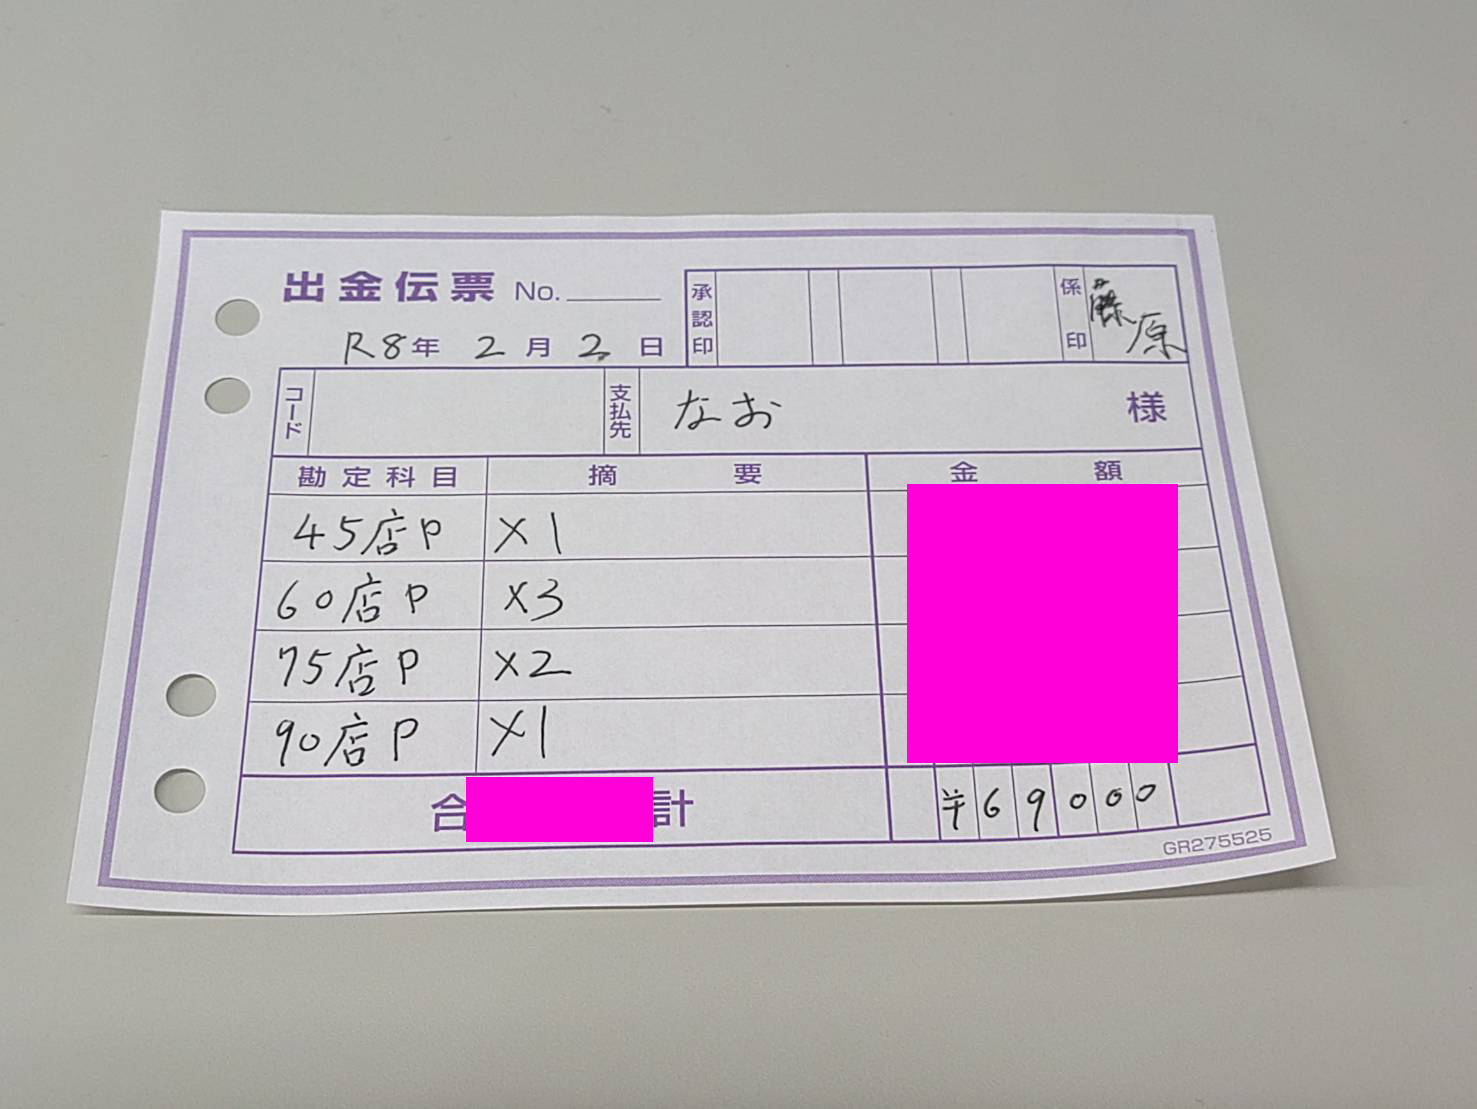 出金伝票 No.
R8年 2月 2日
承認印
係印 藤原
コード
支払先 なお 様
勘定科目 摘要 金額
45店P ×1
60店P ×3
75店P ×2
90店P ×1
合計 ¥69000
GR275525